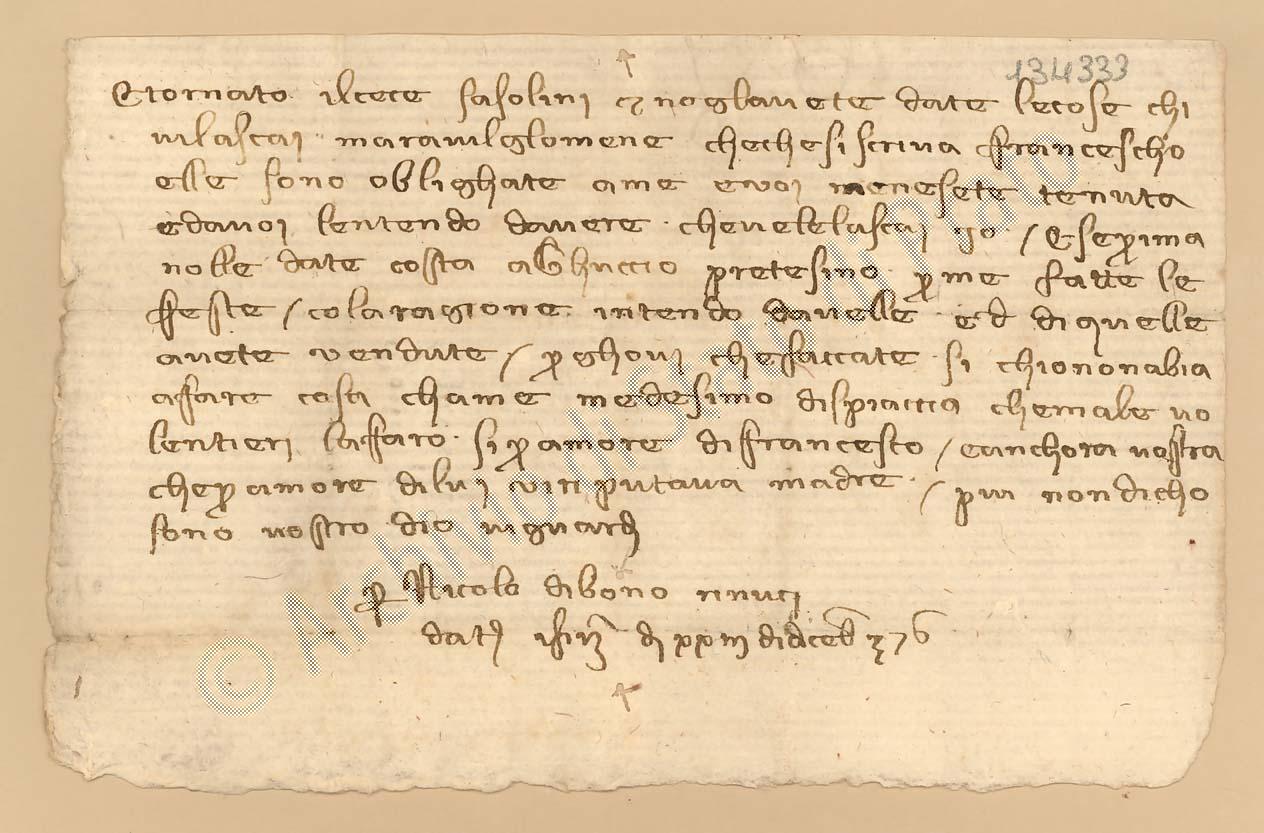 134333
Etornato ilcece sasolini & noglavete date lecose chi
vilascai maravilglomene chechesi scriva francescho
elle sono oblighate ame evoi menesete tenuta
edavoi lentendo davere chevelelascai / Esep̱rima
nolle date costa pretesino p̱me fatte le
feste / cola ragione intendo davelle ed diquelle
avete vendute / p̱ghovi chefacciate si chiononabia
affare cosa chame medesimo dispiaccia chemale vo
lentieri laffaro sip̱amore difrancesco / eanchora vostra
chep̱amore dilui viriputava madre / piu nondicho
sono vostro dio viguardi
p̱ Nicolo dibono
dat di xxiii didiceb 376
© Archivio di Stato di Prato